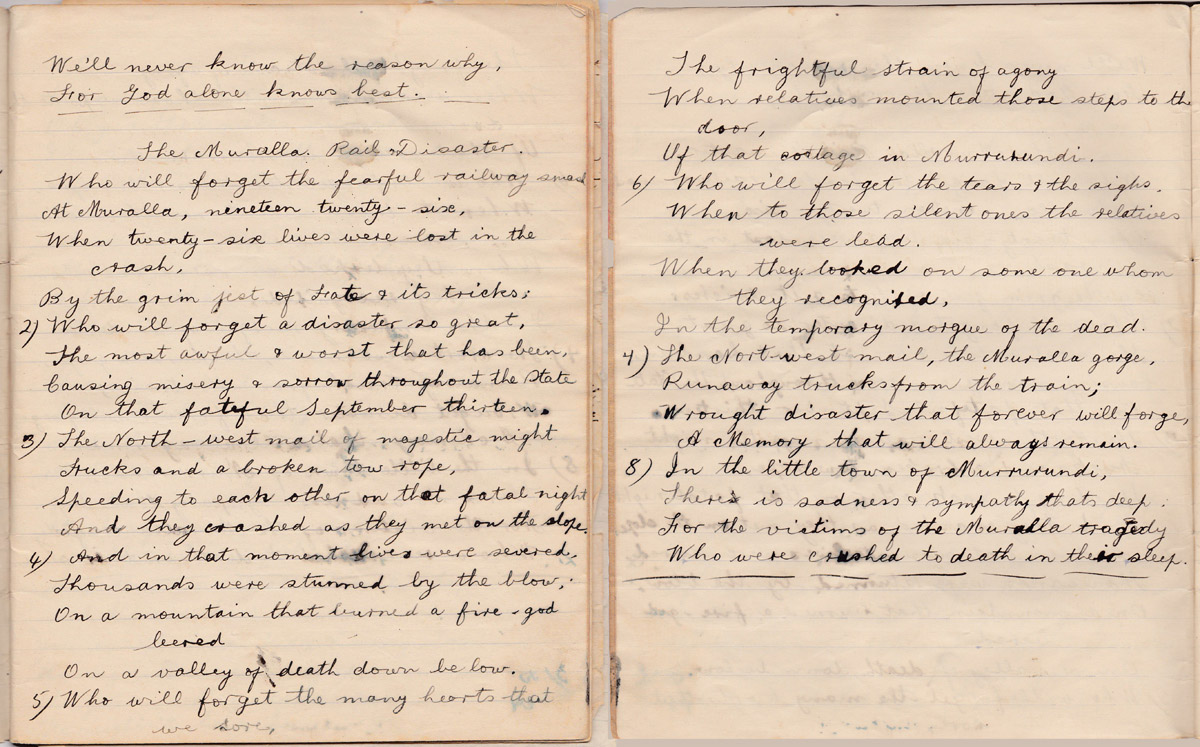 We'll never know the reason why,
For God alone knows best.
The Muralla. Rail Disaster.
Who will forget the fearful railway smash
At Muralla, nineteen twenty-six,
When twenty-six lives were lost in the
crash,
By the grim jest of Fate & its tricks;
2) Who will forget a disaster so great,
The most awful & worst that has been,
Causing misery & sorrow throughout the State
On that fateful September thirteen.
3) The North-west mail of majestic might
Trucks and a broken tow rope,
Speeding to each other on that fatal night
And they crashed as they met on the slope.
4) And in that moment lives were severed,
Thousands were stunned by the blow;
On a mountain that burned a fire-god
leered
On a valley of death down be low.
5) Who will forget the many hearts that
we sore,
The frightful strain of agony
When relatives mounted those steps to the
door,
Of that cottage in Murrurundi.
6) Who will forget the tears & the sighs.
When to those silent ones the relatives
were lead.
When they looked on some one whom
they recognised,
In the temporary morgue of the dead.
7) The Nort-west mail, the Muralla gorge,
Runaway trucks from the train;
Wrought disaster that forever will forge,
A Memory that will always remain.
8) In the little town of Murrurundi,
There's is sadness & sympathy thats deep:
For the victims of the Muralla tragedy
Who were crushed to death in their sleep.